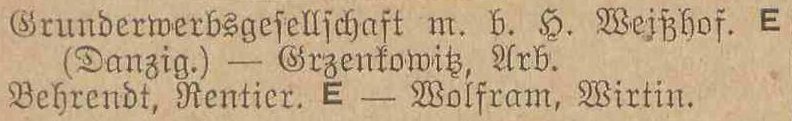 Grunderwerbsgesellschaft m. b. H. Weißhof. E
(Danzig.) — Grzenkowitz, Arb.
Behrendt, Rentier. E — Wolfram, Wirtin.